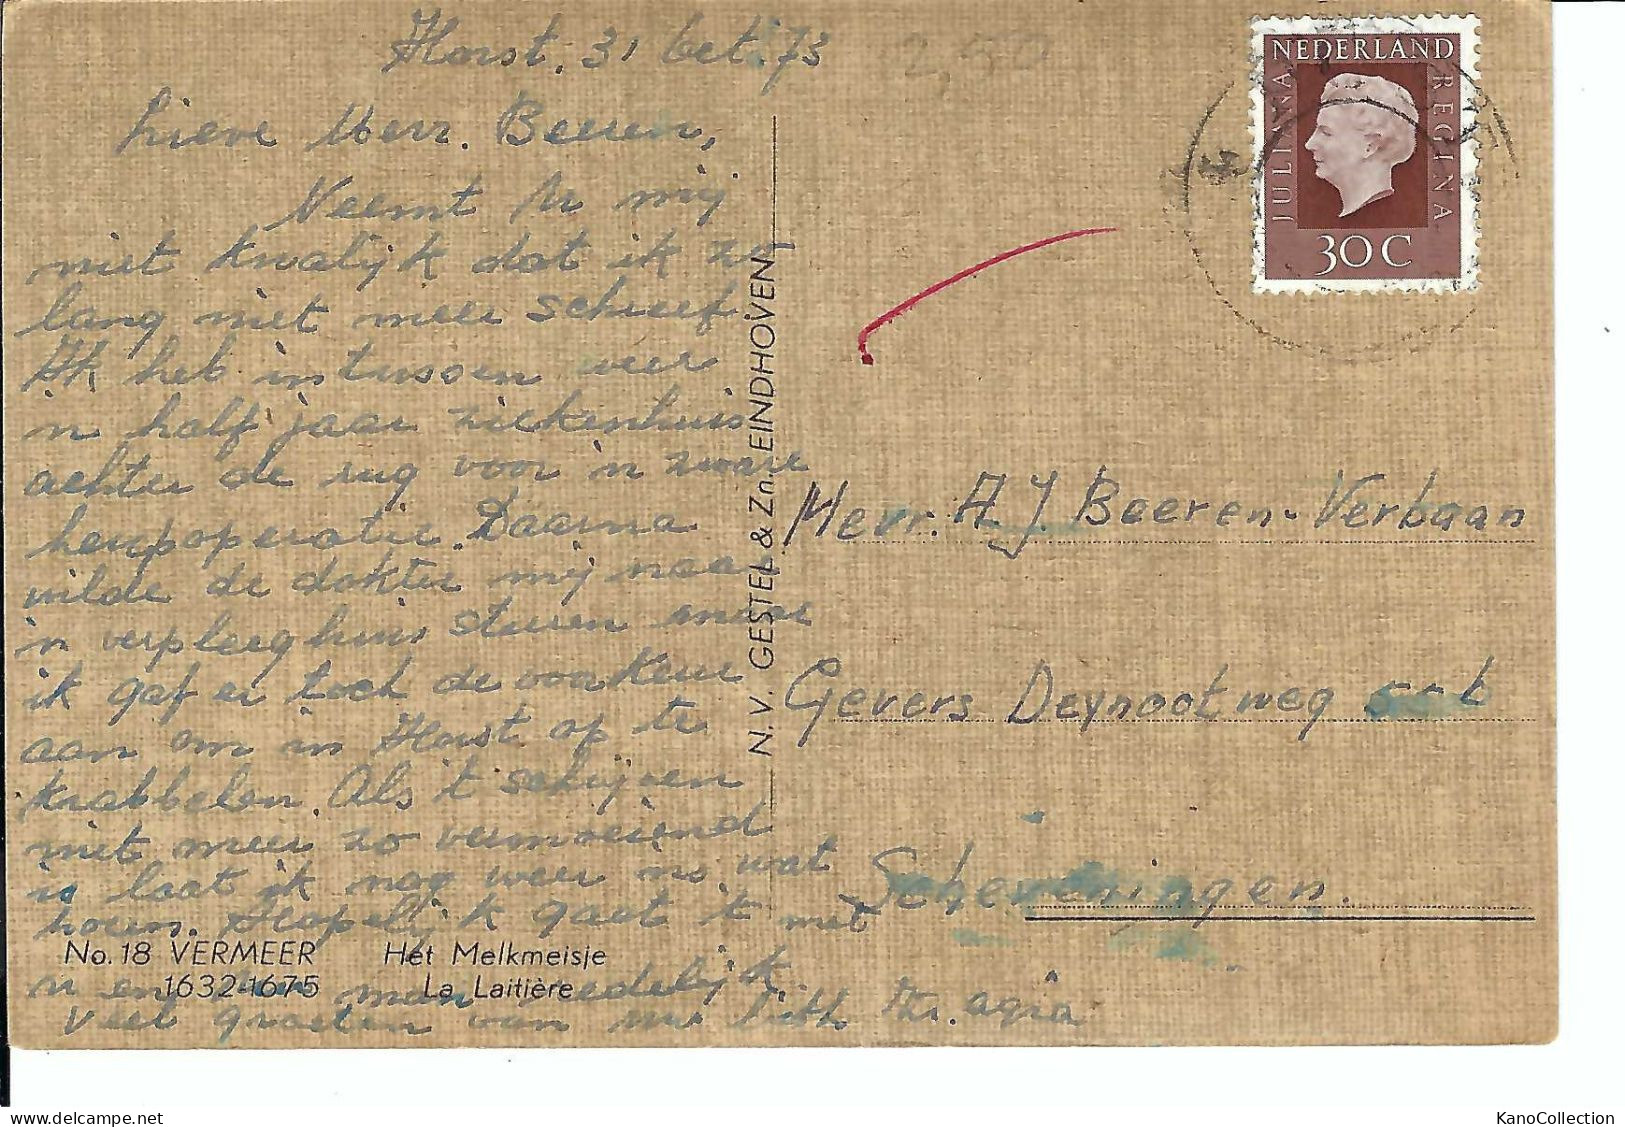 Horst. 31 oct. 73
2,50
Lieve Mevr. Beeren,
Neemt U mij
niet kwalijk dat ik zo
lang niet meer schreef
Ik heb intussen weer
'n half jaar ziekenhuis
achter de rug voor 'n zware
heupoperatie. Daarna
wilde de dokter mij naar
'n verpleeghuis sturen maar
ik gaf er toch de voorkeur
aan om in Horst op te
krabbelen. Als 't schrijven
niet meer zo vermoeiend
is laat ik nog weer ns wat
horen. Hopelijk gaat 't met
U en Uw man redelijk.
Veel groeten van Uw Zr. Agia
No. 18 VERMEER Het Melkmeisje
1632-1675 La Laitière
N.V. GESTEL & Zn. EINDHOVEN
NEDERLAND
JULIANA REGINA
30 C
Mevr. A J Beeren-Verbaan
Gevers Deynootweg
Scheveningen.
KanoCollection